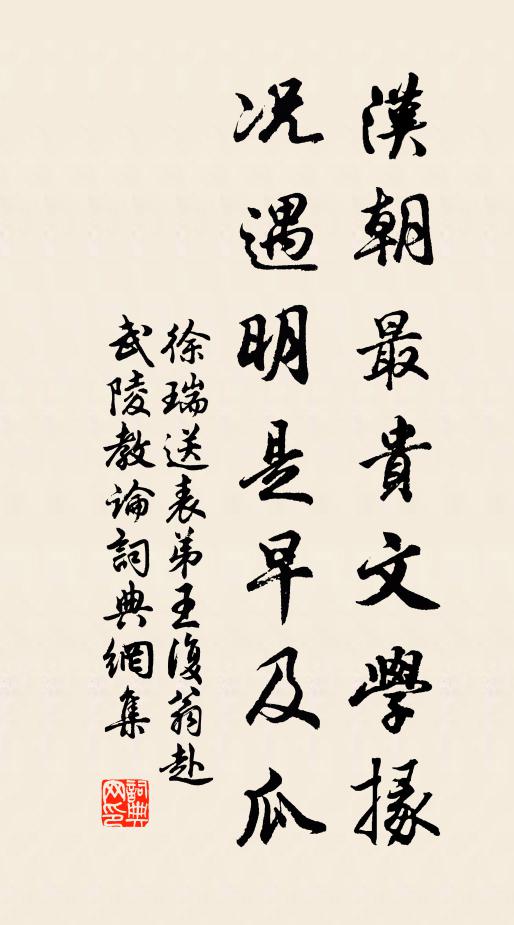 漢朝最貴文學掾
况遇明是早及瓜
徐瑞送表弟王復翁赴
武陵教論詞典網集
詞典网印